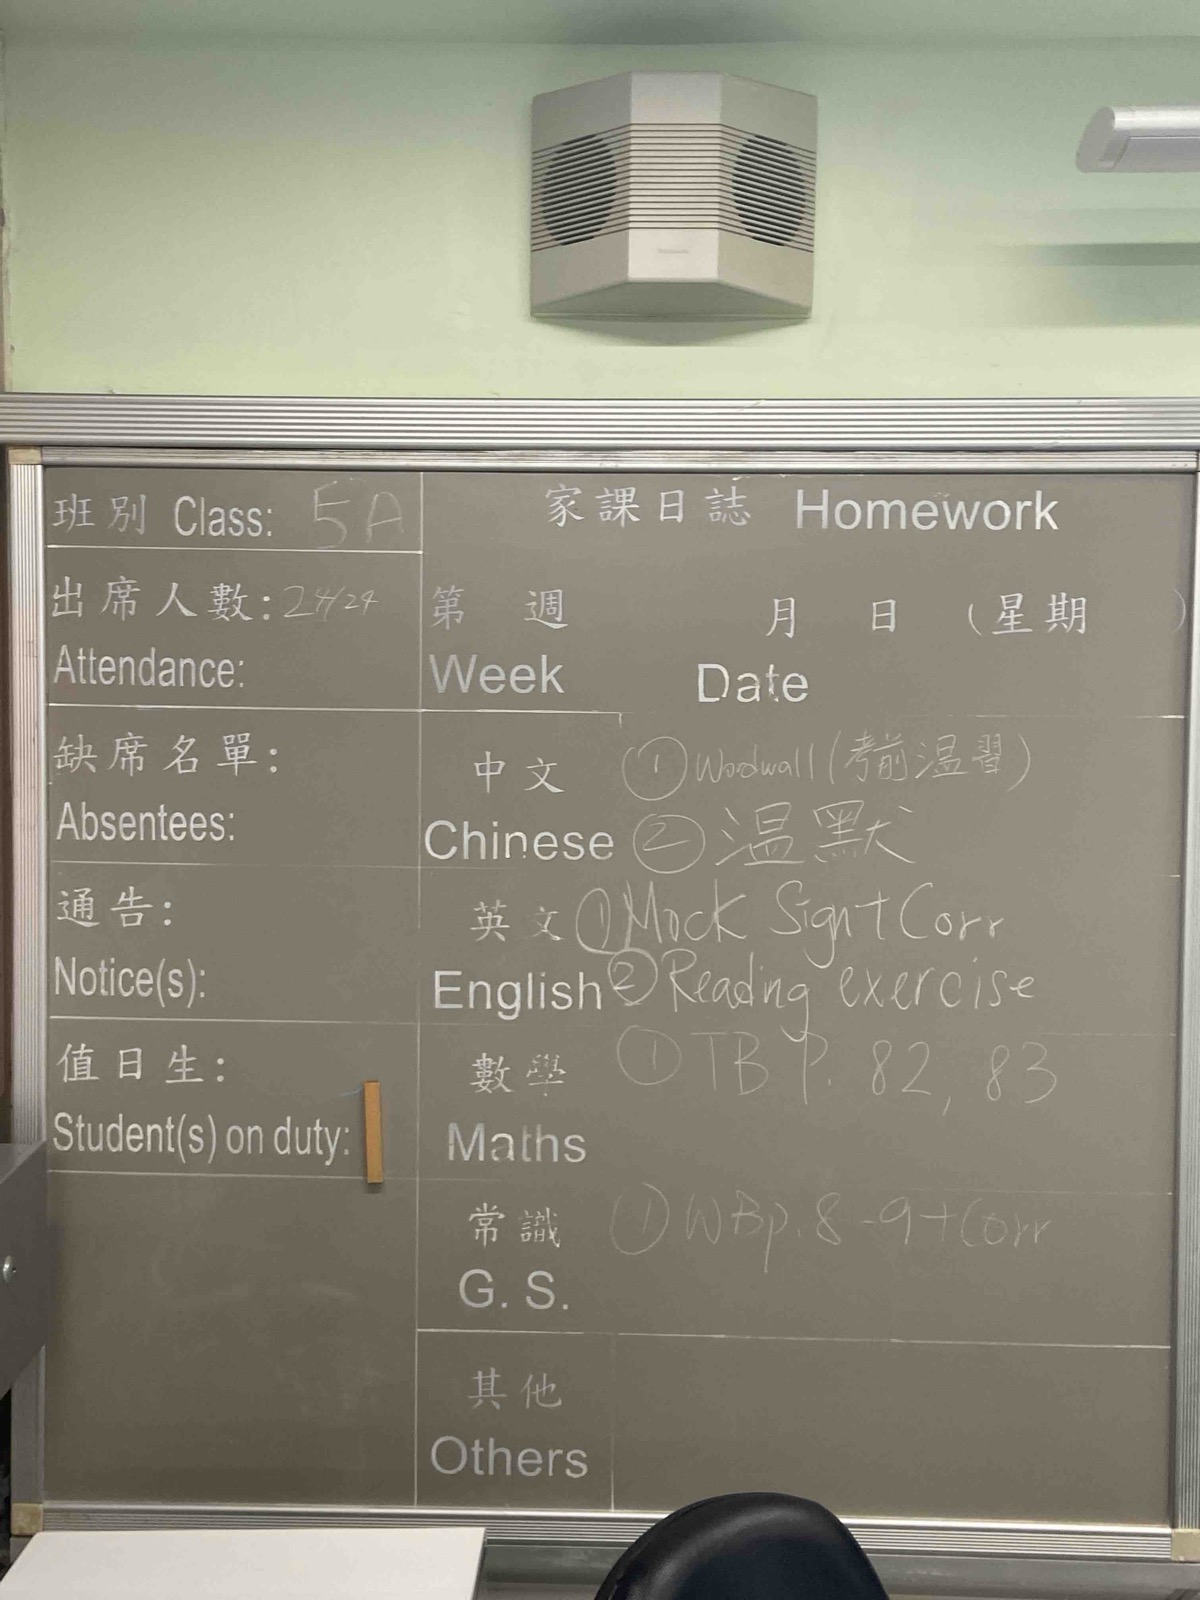 班別 Class: 5A
出席人數: 24/24
Attendance:
缺席名單:
Absentees:
通告:
Notice(s):
值日生:
Student(s) on duty:
家課日誌 Homework
第 週 月 日 (星期 )
Week Date
中文 ① Wordwall (考前温習)
Chinese ② 温默
英文 ① Mock Sign+Corr
English ② Reading exercise
數學 ① TB P. 82, 83
Maths
常識 ① WB p.8-9+Corr
G. S.
其他
Others